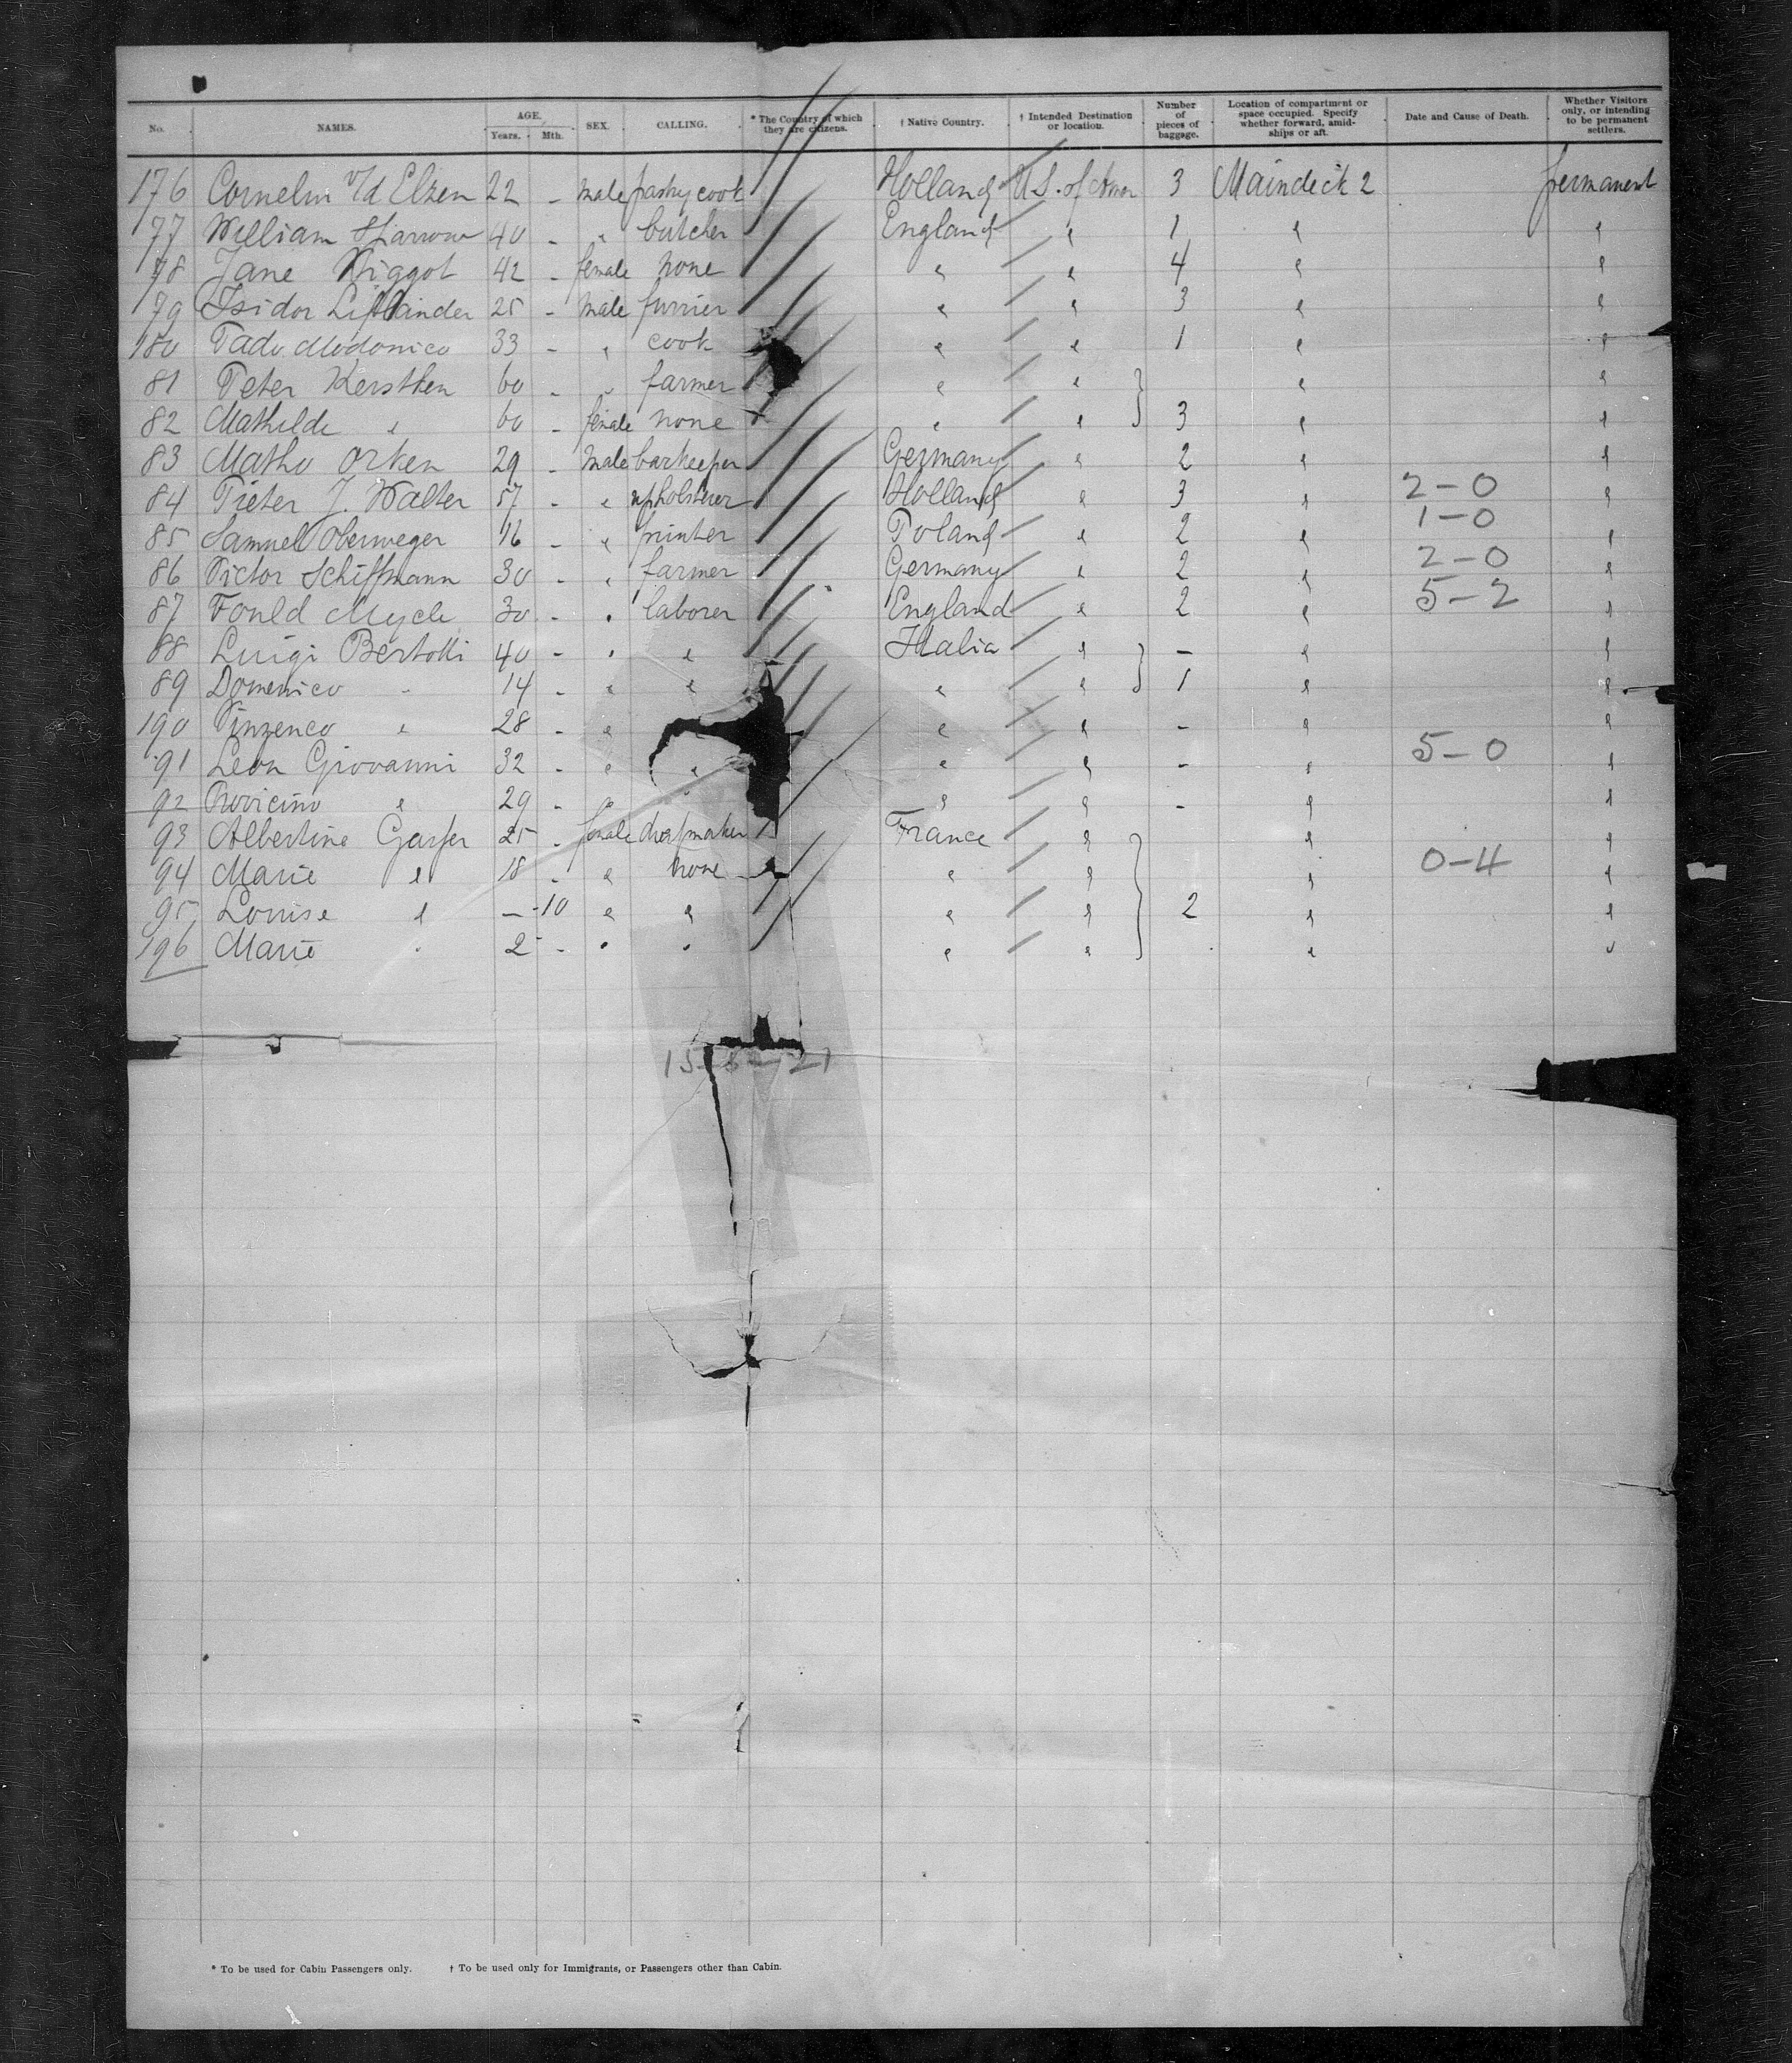 No. NAMES. AGE. Years. Mth. SEX. CALLING. * The Country of which they are citizens. † Native Country. † Intended Destination or location. Number of pieces of baggage. Location of compartment or space occupied. Specify whether forward, amidships or aft. Date and Cause of Death. Whether Visitors only, or intending to be permanent settlers.
176 v/d Elzen 22 - male pastry cook Holland U.S. of Amer 3 Maindeck 2 permanent
77 William Sparrow 40 - " butcher England " 1 " "
78 Jane 42 - female none " " 4 " "
79 Isidor 25 - male furrier " " 3 " "
180 Modonico 33 - " cook " " 1 " "
81 Peter Kersthen 60 - " farmer " " " "
82 Mathilde " 60 - female none " " 3 " "
83 Orken 29 - male barkeeper Germany " 2 " "
84 Pieter J. Walter 57 - " upholsterer Holland " 3 " 2-0 "
85 Samuel Oberweger 16 - " printer Poland " 2 " 1-0 "
86 Victor Schiffmann 30 - " farmer Germany " 2 " 2-0 "
87 Fould Mycle 30 - " laborer England " 2 " 5-2 "
88 Luigi Bertolli 40 - " " Italia " - " "
89 Domenico " 14 - " " " " 1 " "
190 Vinzenco " 28 - " " " " - " "
91 Leon Giovanni 32 - " " " " - " 5-0 "
92 " 29 - " " " " - " "
93 Albertine 25 - female France " " "
94 Marie " 18 - " none " " " 0-4 "
95 Louise " - 10 " " " " 2 " "
196 Marie " 2 - " " " " " "
15-6-21
* To be used for Cabin Passengers only. † To be used only for Immigrants, or Passengers other than Cabin.